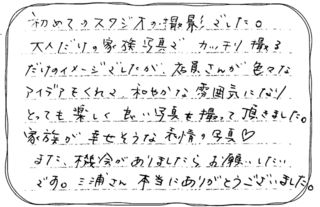 初めてのスタジオの撮影でした。
大人だけの家族写真で カッチリ 撮る
だけのイメージでしたが、店員さんが 色々な
アイデアをくれて 和やかな 雰囲気になり
とっても 楽しく 良い写真を 撮って 頂きました。
家族が 幸せそうな 表情の写真♡
また、機会が ありましたら お願いしたい
です。三浦さん 本当にありがとうございました。